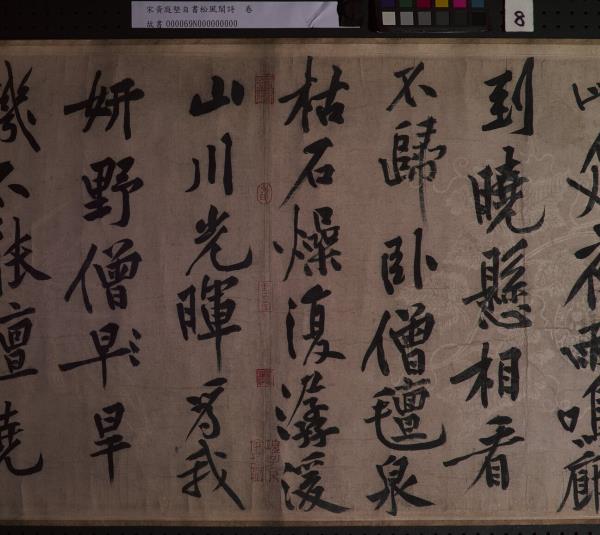 宋黃庭堅自書松風閣詩　卷
故書 000069N000000000
8
夜雨鳴廊
到曉懸相看
不歸臥僧氈泉
枯石燥復潺湲
山川光暉為我
妍野僧早旱
饑不能饘曉